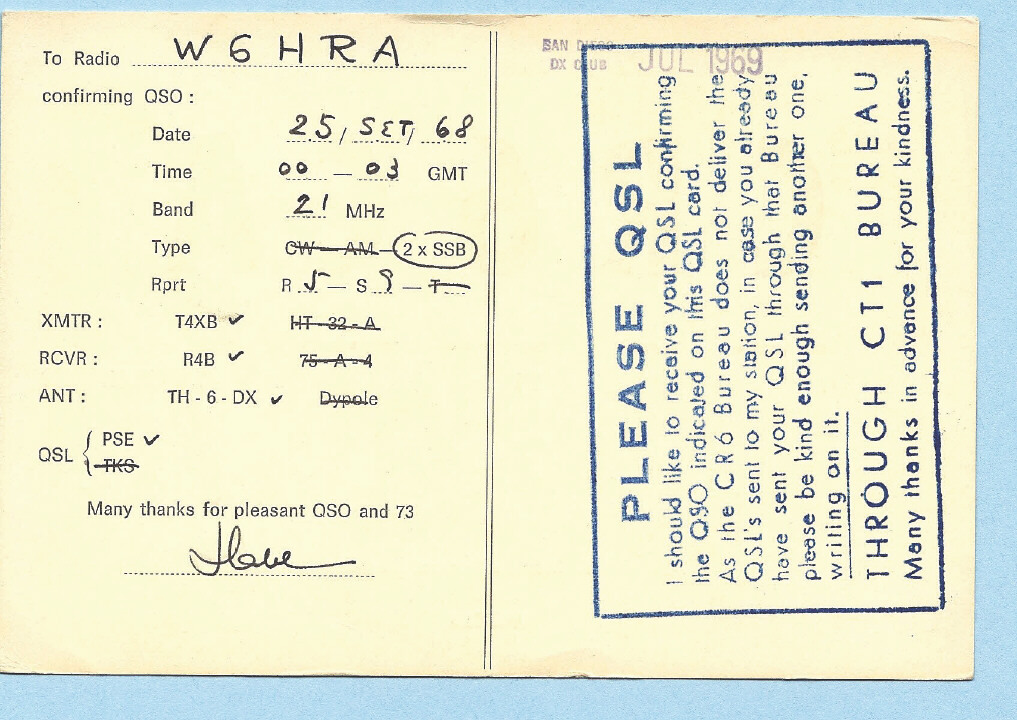 To Radio W6HRA
confirming QSO :
Date 25/SET/68
Time 00 — 03 GMT
Band 21 MHz
Type CW — AM — 2 x SSB
Rprt R 5 — S 9 — T
XMTR : T4XB ✓ HT - 32 - A
RCVR : R4B ✓ 75 - A - 4
ANT : TH - 6 - DX ✓ Dypole
QSL { PSE ✓
TKS
Many thanks for pleasant QSO and 73
SAN DIEGO
DX CLUB
JUL 1969
PLEASE QSL
I should like to receive your QSL confirming
the QSO indicated on this QSL card.
As the CR6 Bureau does not deliver the
QSL's sent to my station, in case you already
have sent your QSL through that Bureau
please be kind enough sending another one,
writing on it.
THROUGH CT1 BUREAU
Many thanks in advance for your kindness.